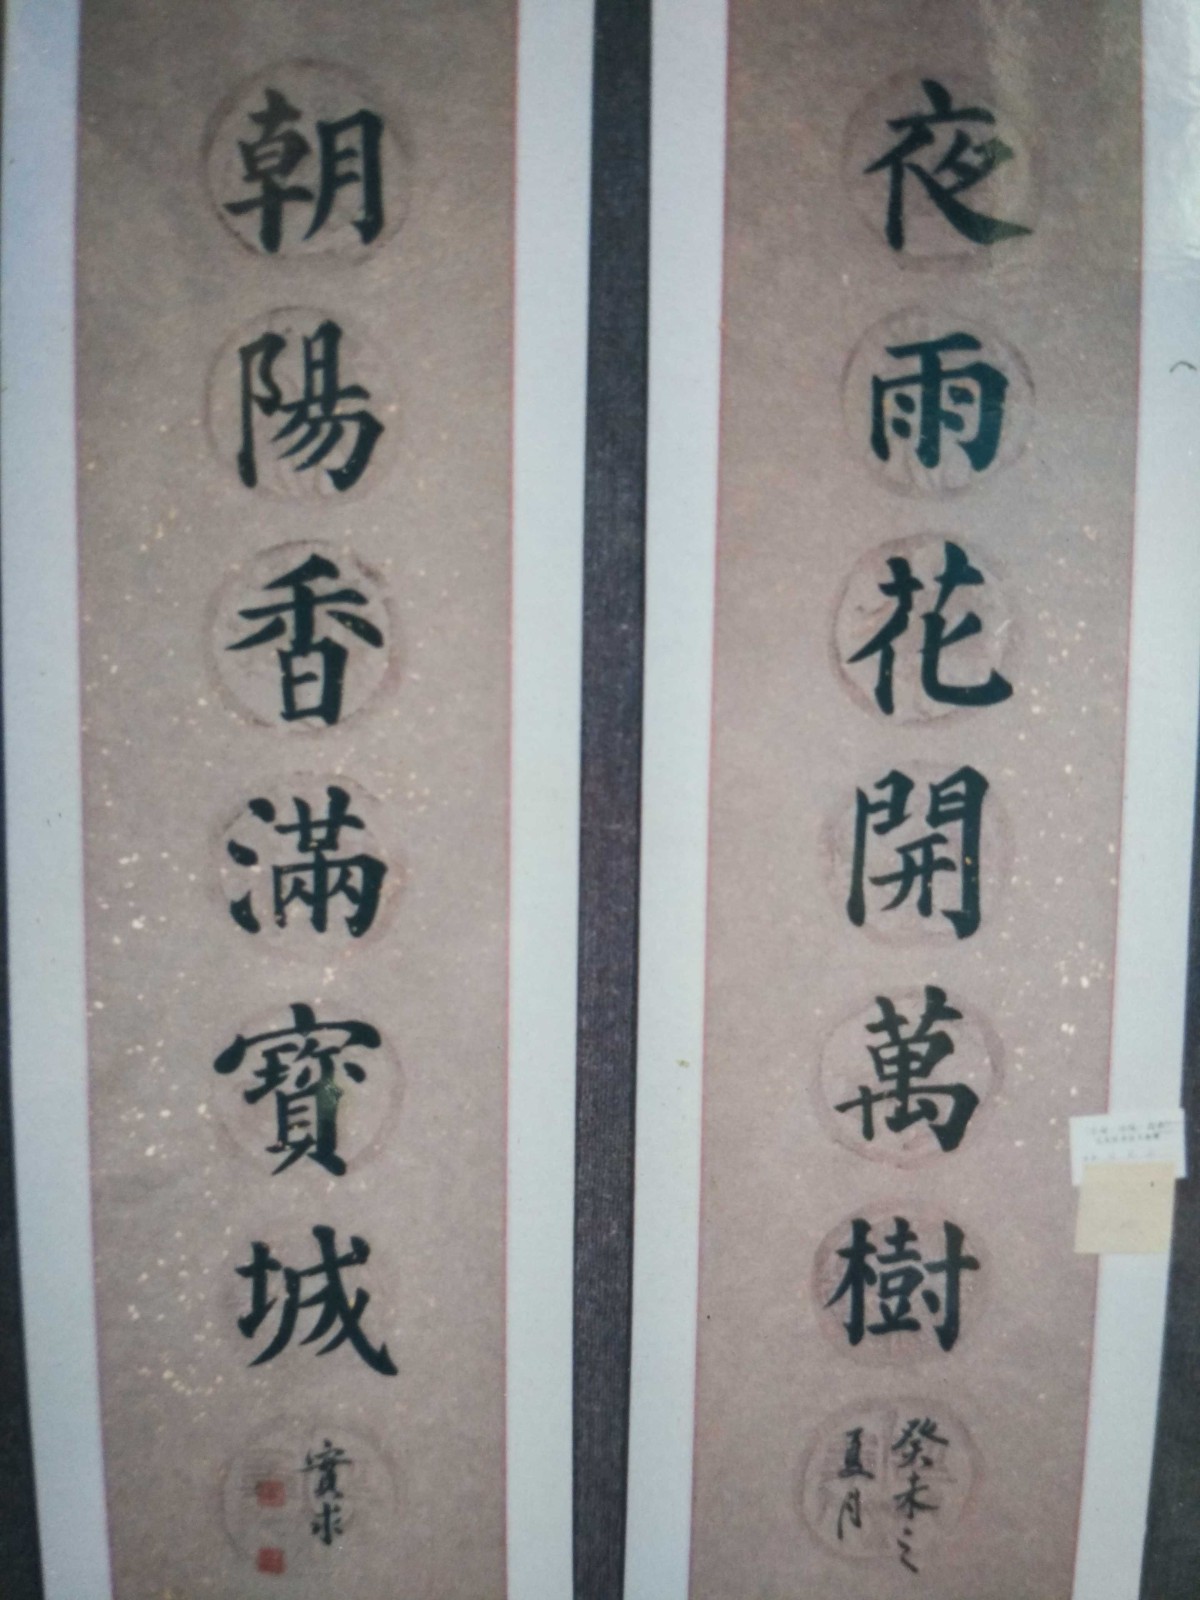 夜雨花開萬樹
癸未之
夏月
朝陽香滿寶城
實求